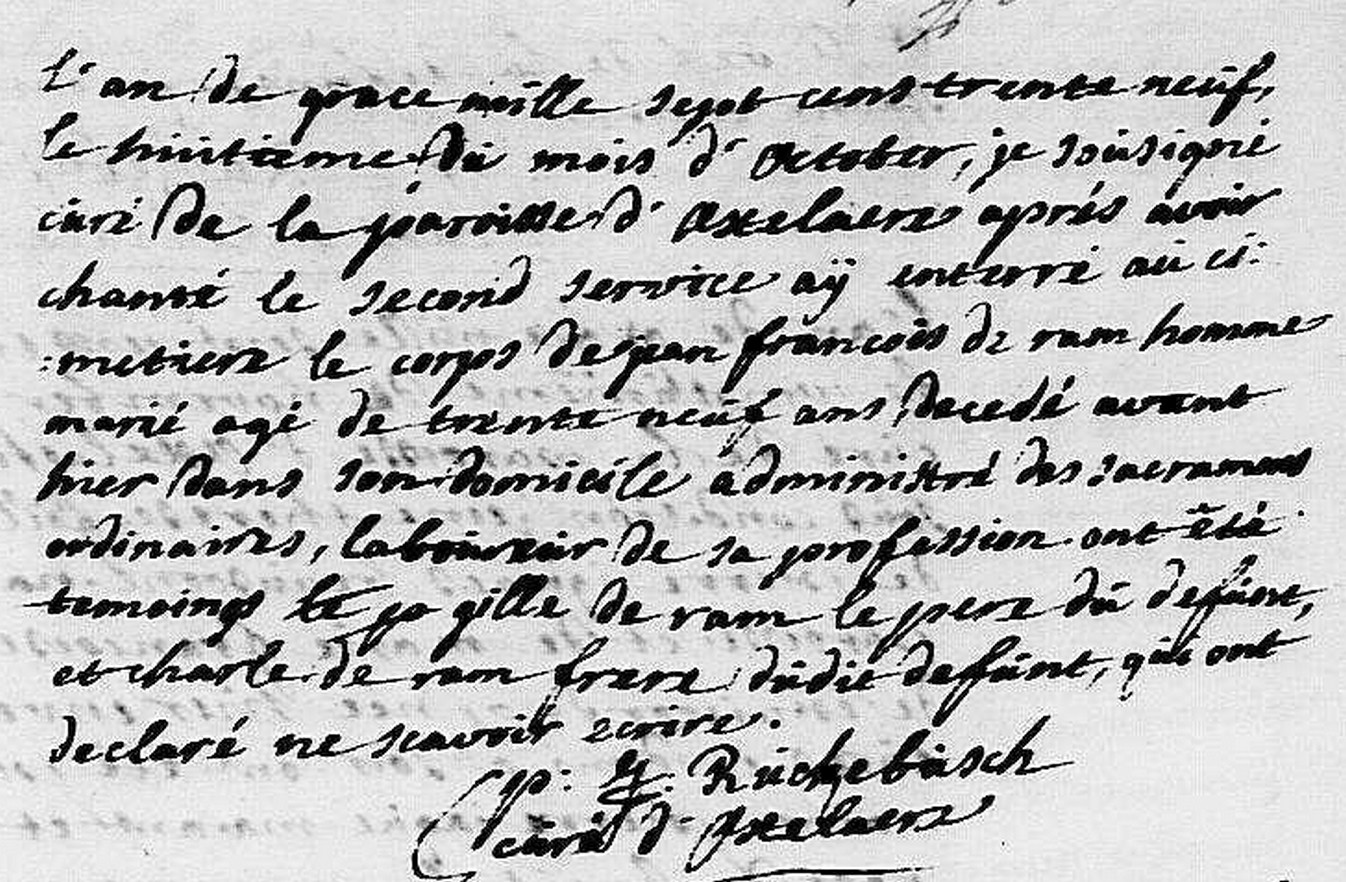 L'an de grace mille sept cens trente neuf,
le huitieme du mois d'October, je soùsigné
cùré de la paroisse d'Oxelaere aprés avoir
chanté le second service aÿ enterré aù ci:
:metiere le corps de jean francois de ram homme
marié agé de trente neùf ans decedé avant
hier dans son domicile administré des sacramens
ordinaires, laboùreùr de sa profession ont êté
temoings gille de ram le pere dù defùnt,
et charle de ram frere dùdit deffùnt, qùi ont
declaré ne scavoir ecrire.
p: g. Rùckebùsch
cùré d'Oxelaere